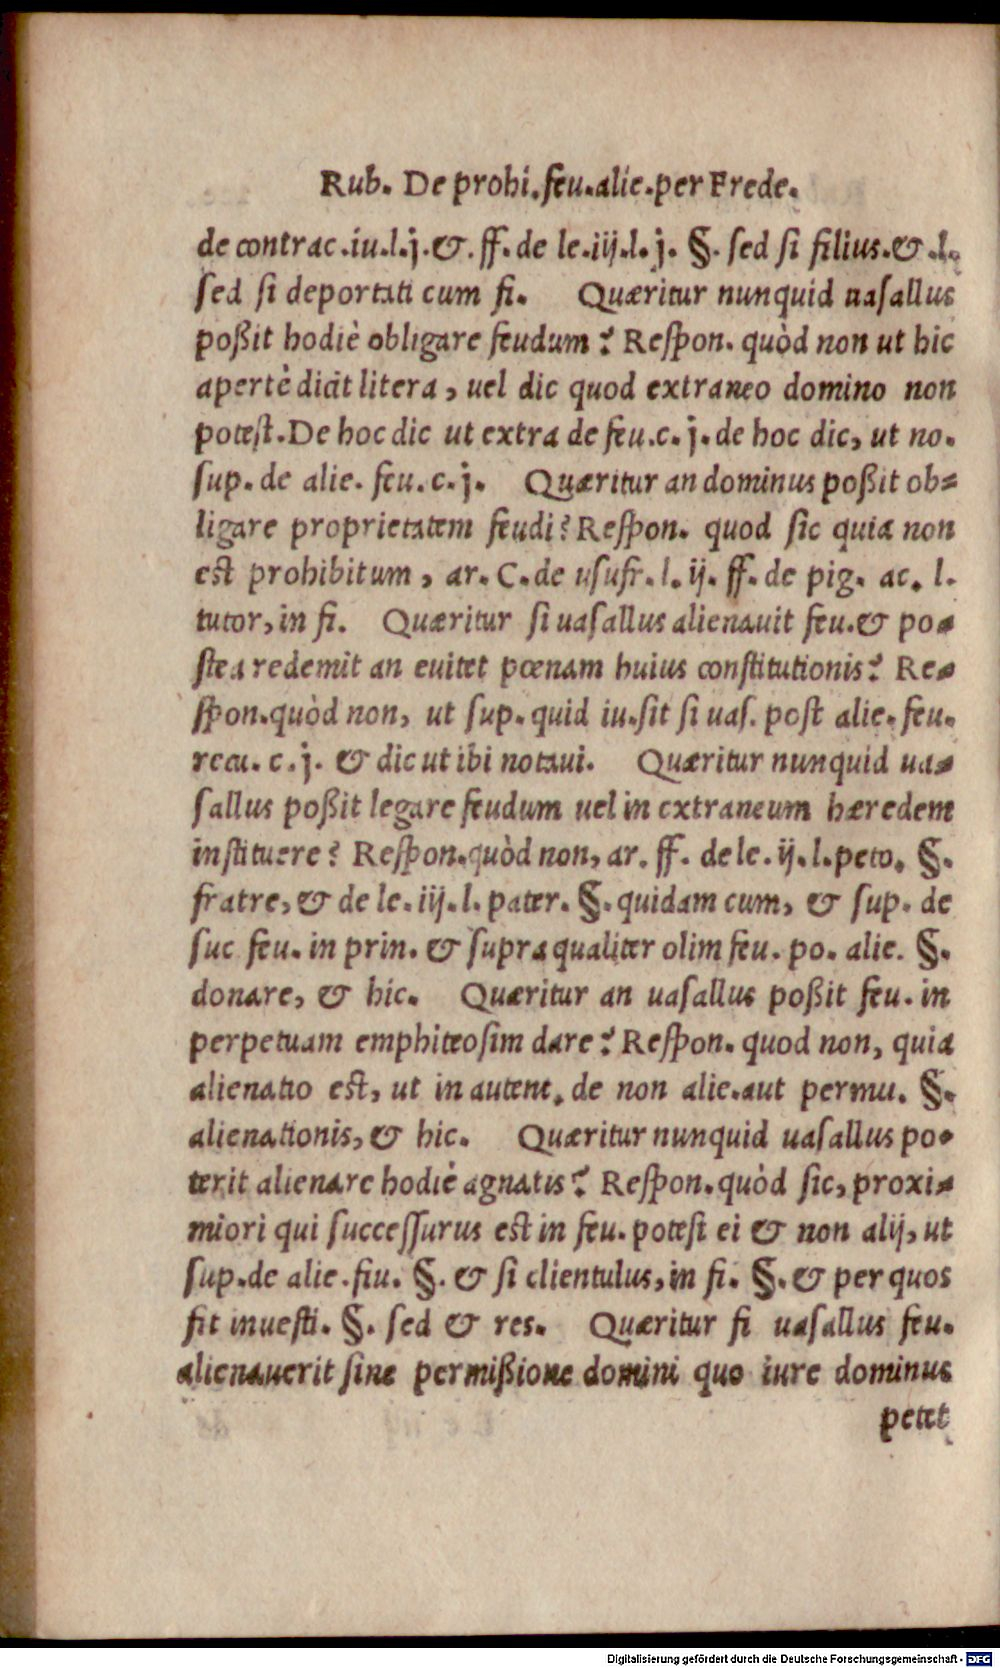 Rub. De prohi. feu. alie. per Frede.
de contrac. iu. l. j. & . ff. de le. iij. l. j. §. sed si filius. & . l.
sed si deportati cum si. Quæritur nunquid uasallus
poßit hodiè obligare feudum? Respon. quòd non ut hic
apertè dicit litera, uel dic quod extraneo domino non
potest. De hoc dic ut extra de feu. c. j. de hoc dic, ut no.
sup. de alie. feu. c. j. Quæritur an dominus poßit ob=
ligare proprietatem feudi? Respon. quod sic quia non
est prohibitum, ar. C. de usufr. l. ij. ff. de pig. ac. l.
tutor, in fi. Quæritur si uasallus alienauit feu. & po=
stea redemit an euitet pœnam huius constitutionis? Re=
spon. quòd non, ut sup. quid iu. sit si uas. post alie. feu.
recu. c. j. & dic ut ibi notaui. Quæritur nunquid ua=
sallus poßit legare feudum uel in extraneum hæredem
instituere? Respon. quòd non, ar. ff. de le. ij. l. peto. §.
fratre, & de le. iij. l. pater. §. quidam cum, & sup. de
suc feu. in prin. & supra qualiter olim feu. po. alie. §.
donare, & hic. Quæritur an uasallus poßit feu. in
perpetuam emphiteosim dare? Respon. quod non, quia
alienatio est, ut in autent. de non alie. aut permu. §.
alienationis, & hic. Quæritur nunquid uasallus po=
terit alienare hodiè agnatis? Respon. quòd sic, proxi=
miori qui successurus est in feu. potest ei & non alij, ut
sup. de alie. fiu. §. & si clientulus, in fi. §. & per quos
fit inuesti. §. sed & res. Quæritur si uasallus feu.
alienauerit sine permißione domini quo iure dominus
petet
Digitalisierung gefördert durch die Deutsche Forschungsgemeinschaft - DFG